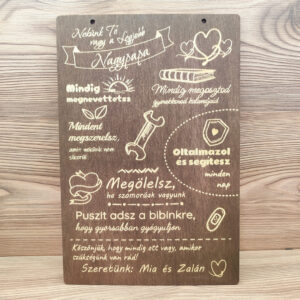 Nekünk Te
vagy a legjobb
Nagypapa
Mindig
megnevettetsz
Mindig megosztod
gyerekkorod kalandjait
Mindent
megszerelsz,
amit nekünk nem
sikerül
Oltalmazol
és segítesz
minden
nap
Megölelsz,
ha szomorúak vagyunk
Puszit adsz a bibinkre,
hogy gyorsabban gyógyuljon
Köszönjük, hogy mindig ott vagy, amikor
szükségünk van rád!
Szeretünk: Mia és Zalán